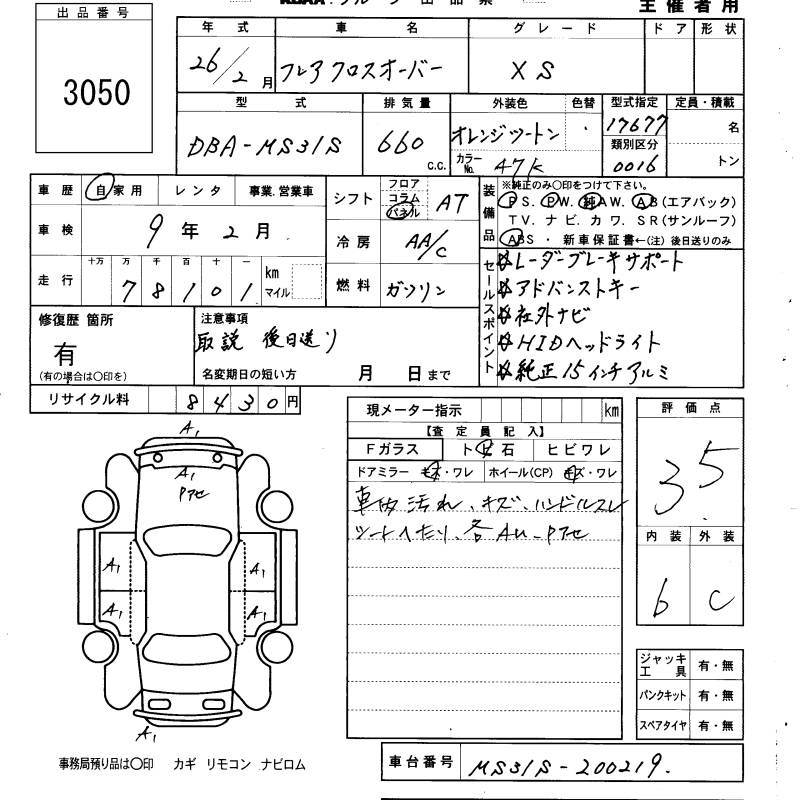 出品番号
3050
主催者用
年式 車名 グレード ドア 形状
26/2月 フレアクロスオーバー XS
型式 排気量 外装色 色替 型式指定 定員・積載
DBA-MS31S 660 c.c. オレンジツートン 17677 名
カラーNo. 47K 類別区分 0016 トン
車歴 自家用 レンタ 事業.営業車
シフト フロア コラム パネル AT
装備品 ※純正のみ○印をつけて下さい。
PS. PW. 純AW. AB(エアバック)
TV. ナビ. カワ. SR(サンルーフ)
ABS . 新車保証書←(注) 後日送りのみ
車検 9年2月
冷房 AA/C
走行 十万 万 千 百 十 一
78101 km マイル
燃料 ガソリン
セールスポイント
☆レーダーブレーキサポート
☆アドバンストキー
☆社外ナビ
☆HIDヘッドライト
☆純正15インチアルミ
修復歴 箇所
有
(有の場合は○印を)
注意事項
取説 後日送り
名変期日の短い方 月 日まで
リサイクル料 8430円
現メーター指示 km
【査定員記入】
Fガラス ト ビ 石 ヒビワレ
ドアミラー キズ・ワレ ホイール(CP) キズ・ワレ
車内汚れ、キズ、ハンドルスレ
シートへたり、各AU、Pアセ
評価点
3.5
内装 外装
b C
A1
A1
Pアセ
A1 A1
A1 A1
A1
ジャッキ工具 有・無
パンクキット 有・無
スペアタイヤ 有・無
事務局預り品は○印 カギ リモコン ナビロム
車台番号 MS31S-200219.